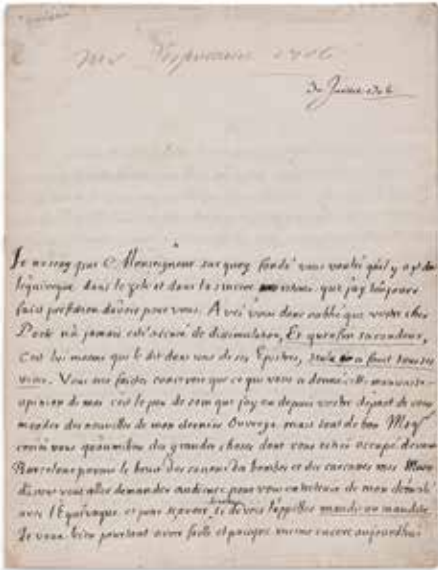 30 Juillet 1706
Je ne sçay pas Monseigneur sur quoy fondé vous voulés qu'il y ayt de
l'équivoque dans le zele et dans la sincere estime que j'ay toujours
faict profession d'avoir pour vous. Avés vous donc oublié que vostre cher
Poete n'a jamais esté accusé de dissimulation, Et qu'enfin sa candeur,
c'est luy mesme qui le dit dans une de ses Epistres, seule a faict tous ses
vices. Vous me faictes concevoir que ce qui vous a donné cette mauvaise
opinion de moi c'est le peu de soin que j'ay eu depuis vostre départ de vous
mander des nouvelles de mon dernier Ouvrage mais tout de bon Mgr
croiés vous qu'au milieu des grandes choses dont vous estiés occupé devant
Barcelone parmi le bruit des canons des bombes et des carcasses mes Muses
deussent vous aller demander audience pour vous entretenir de mon démeslé
avec l'Equivoque et pour sçavoir de vous si je devois l'appeller maudit ou maudite.
Je veux bien pourtant avoir failli et puisque mesme encore aujourdhui